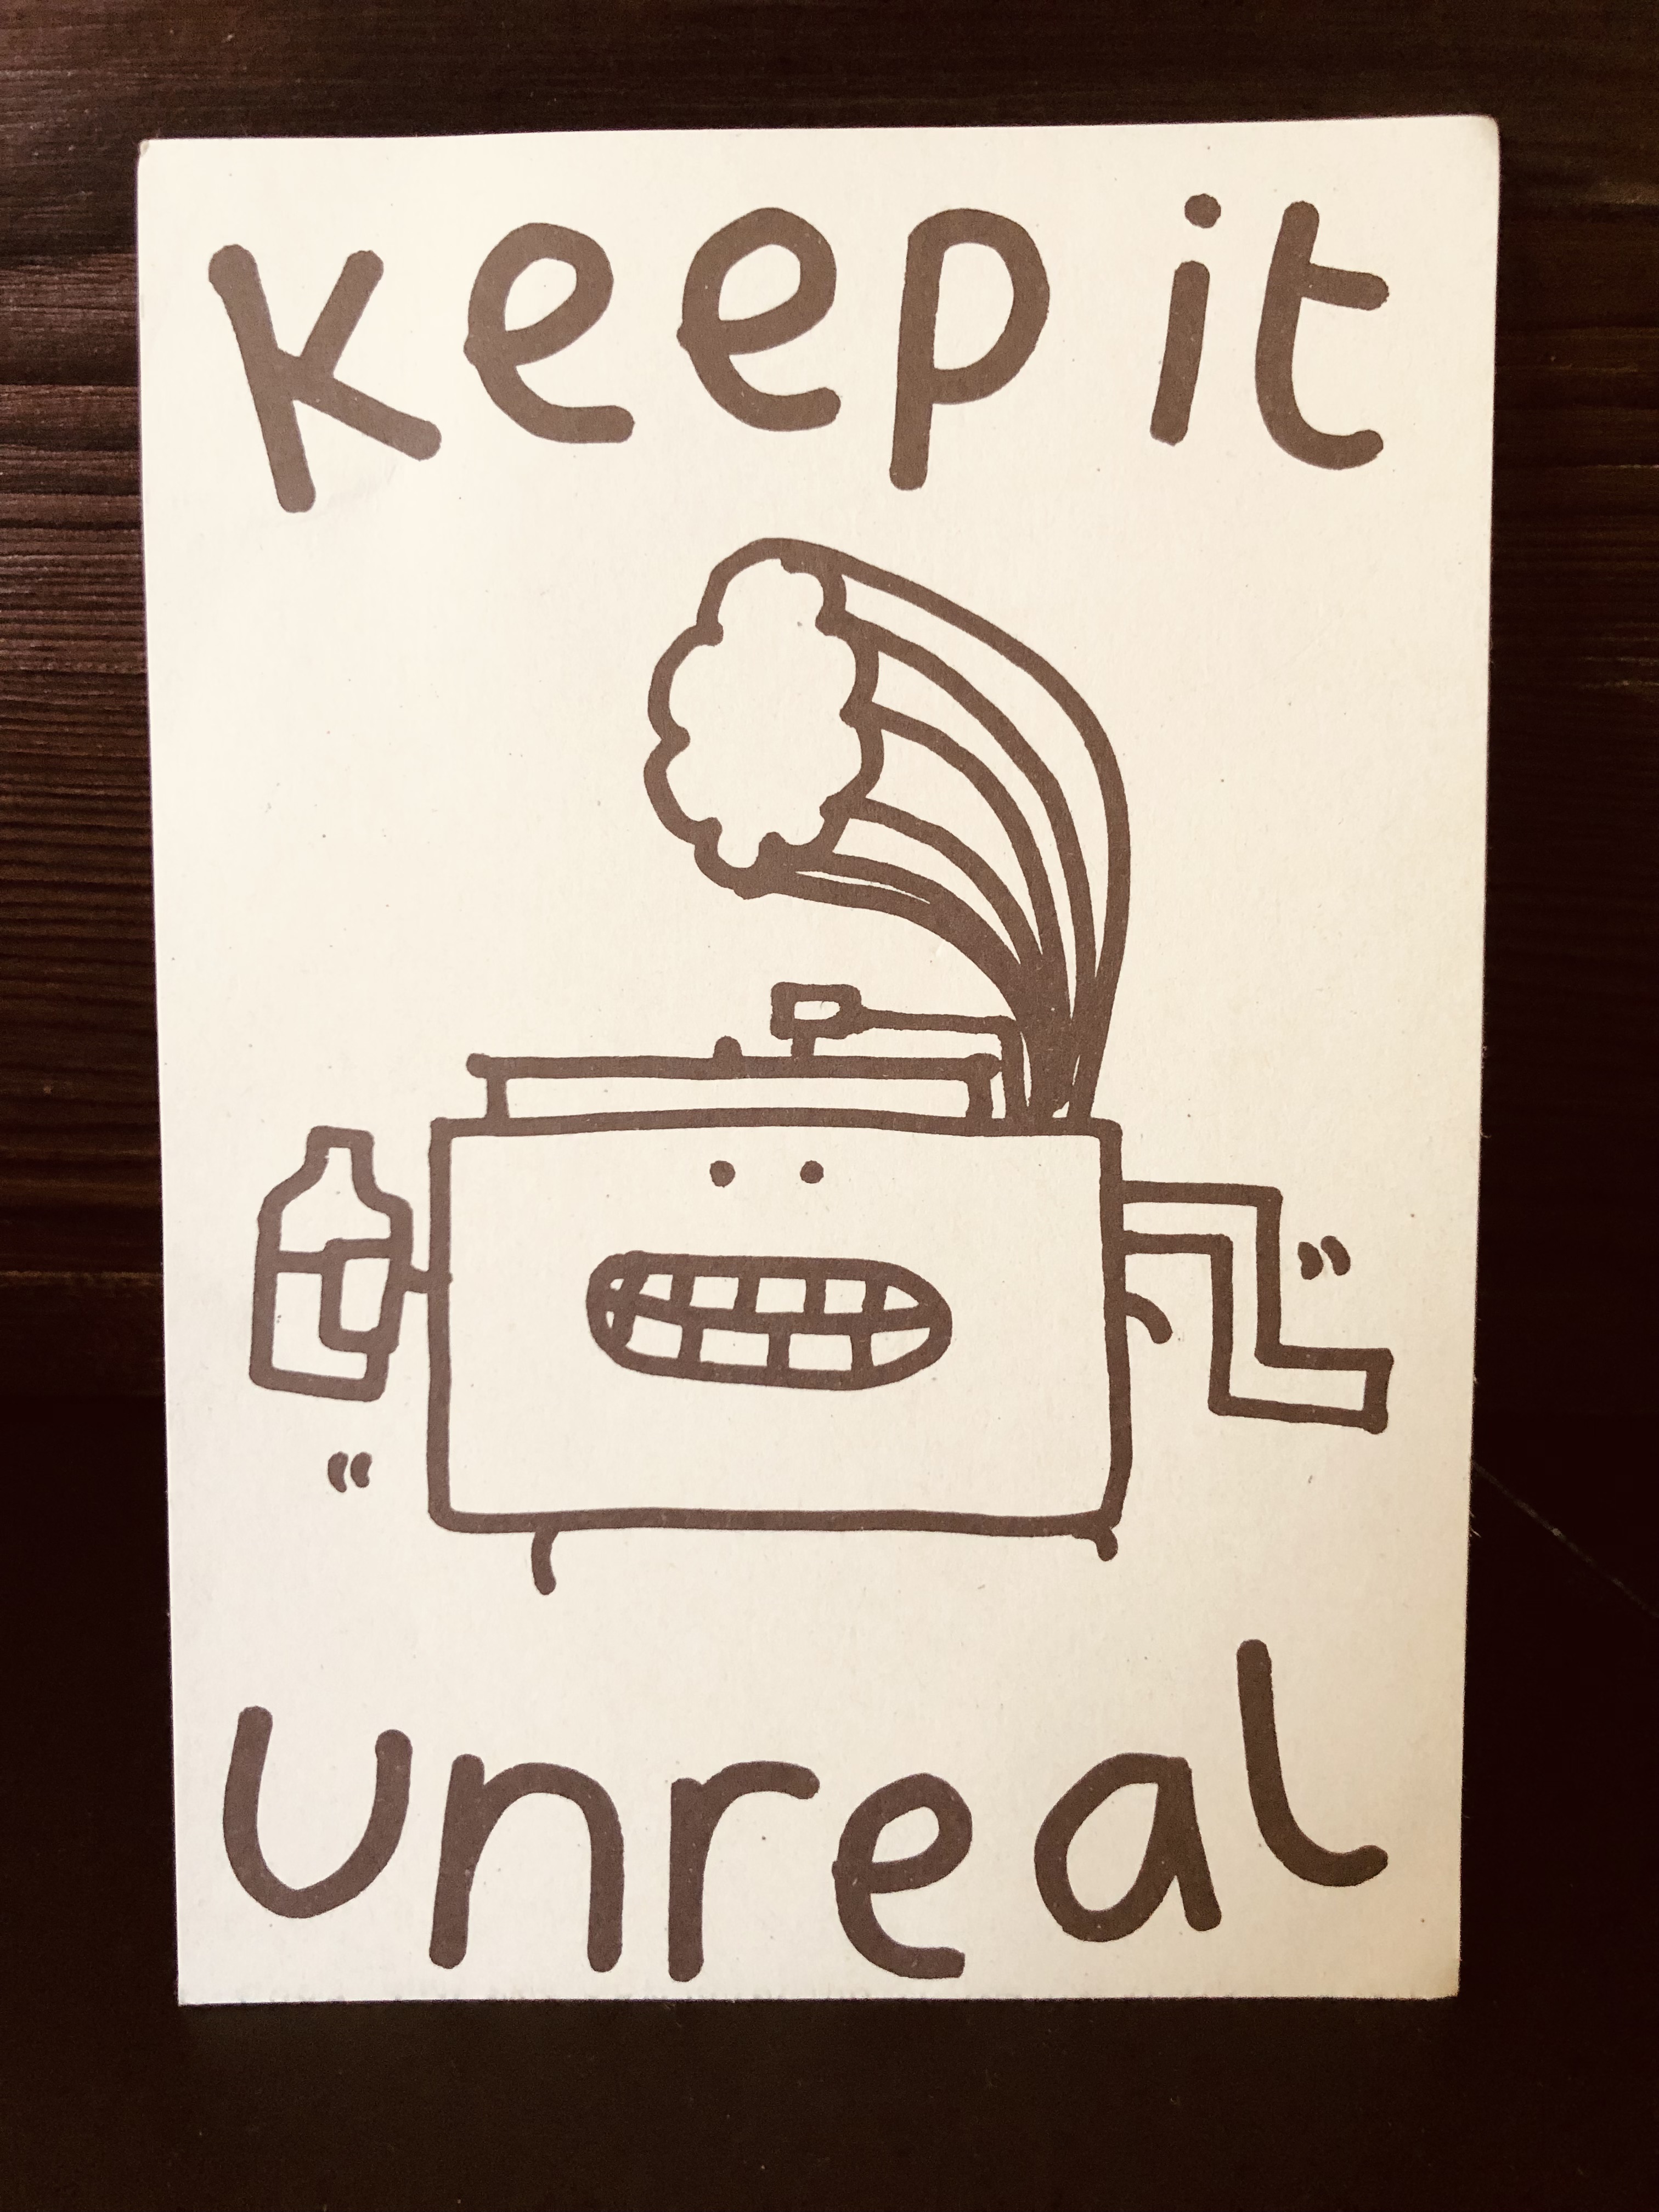 Keep it
unreal